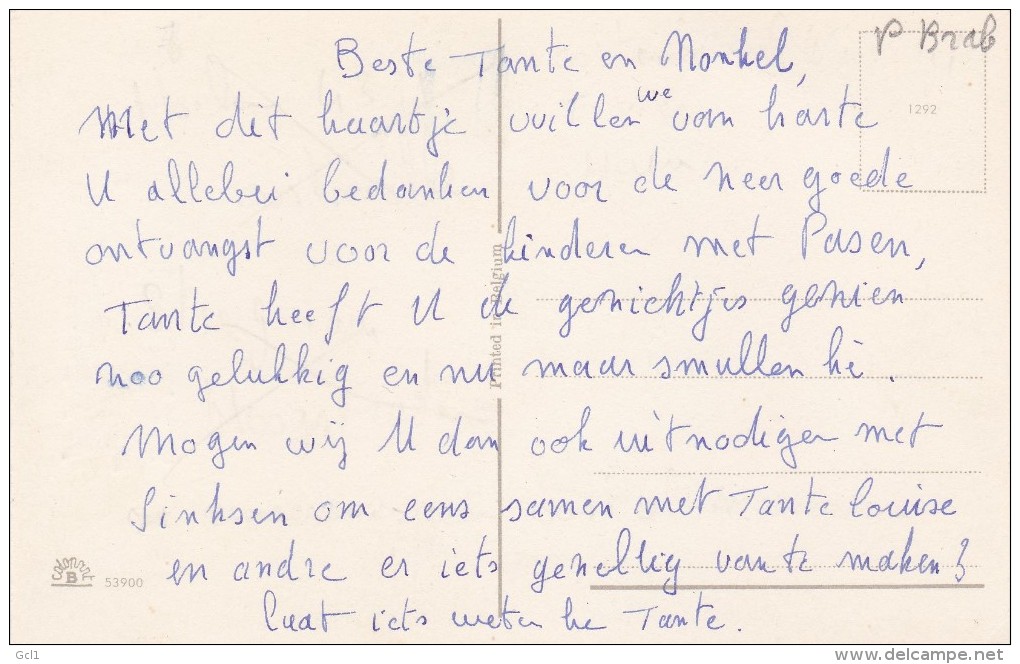 P Brab
1292
Beste Tante en Nonkel,
Met dit kaartje willen we van harte
U allebei bedanken voor de zeer goede
ontvangst voor de kinderen met Pasen,
Tante heeft U de gezichtjes gezien
zoo gelukkig en nu maar smullen hé.
Mogen wij U dan ook uitnodigen met
Sinksen om eens samen met Tante Louise
en andre er iets gezellig van te maken?
laat iets weten he Tante.
Printed in Belgium
colorprint
B
53900
Gcl1
delcampe.net